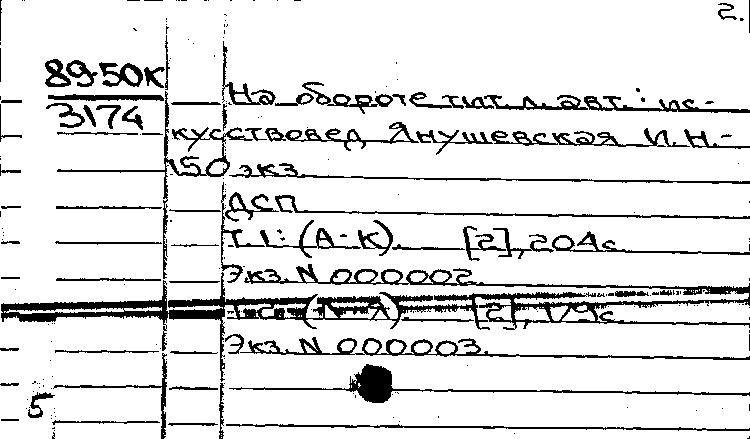 2.
89-50к
3174
На обороте тит. л. авт.: ис-
кусствовед Янушевская И. Н.-
150 экз.
ДСП
Т. 1: (А-К). [2], 204с.
Экз. N 000002.
(Л-Я). [2], 179с.
Экз. N 000003.
5